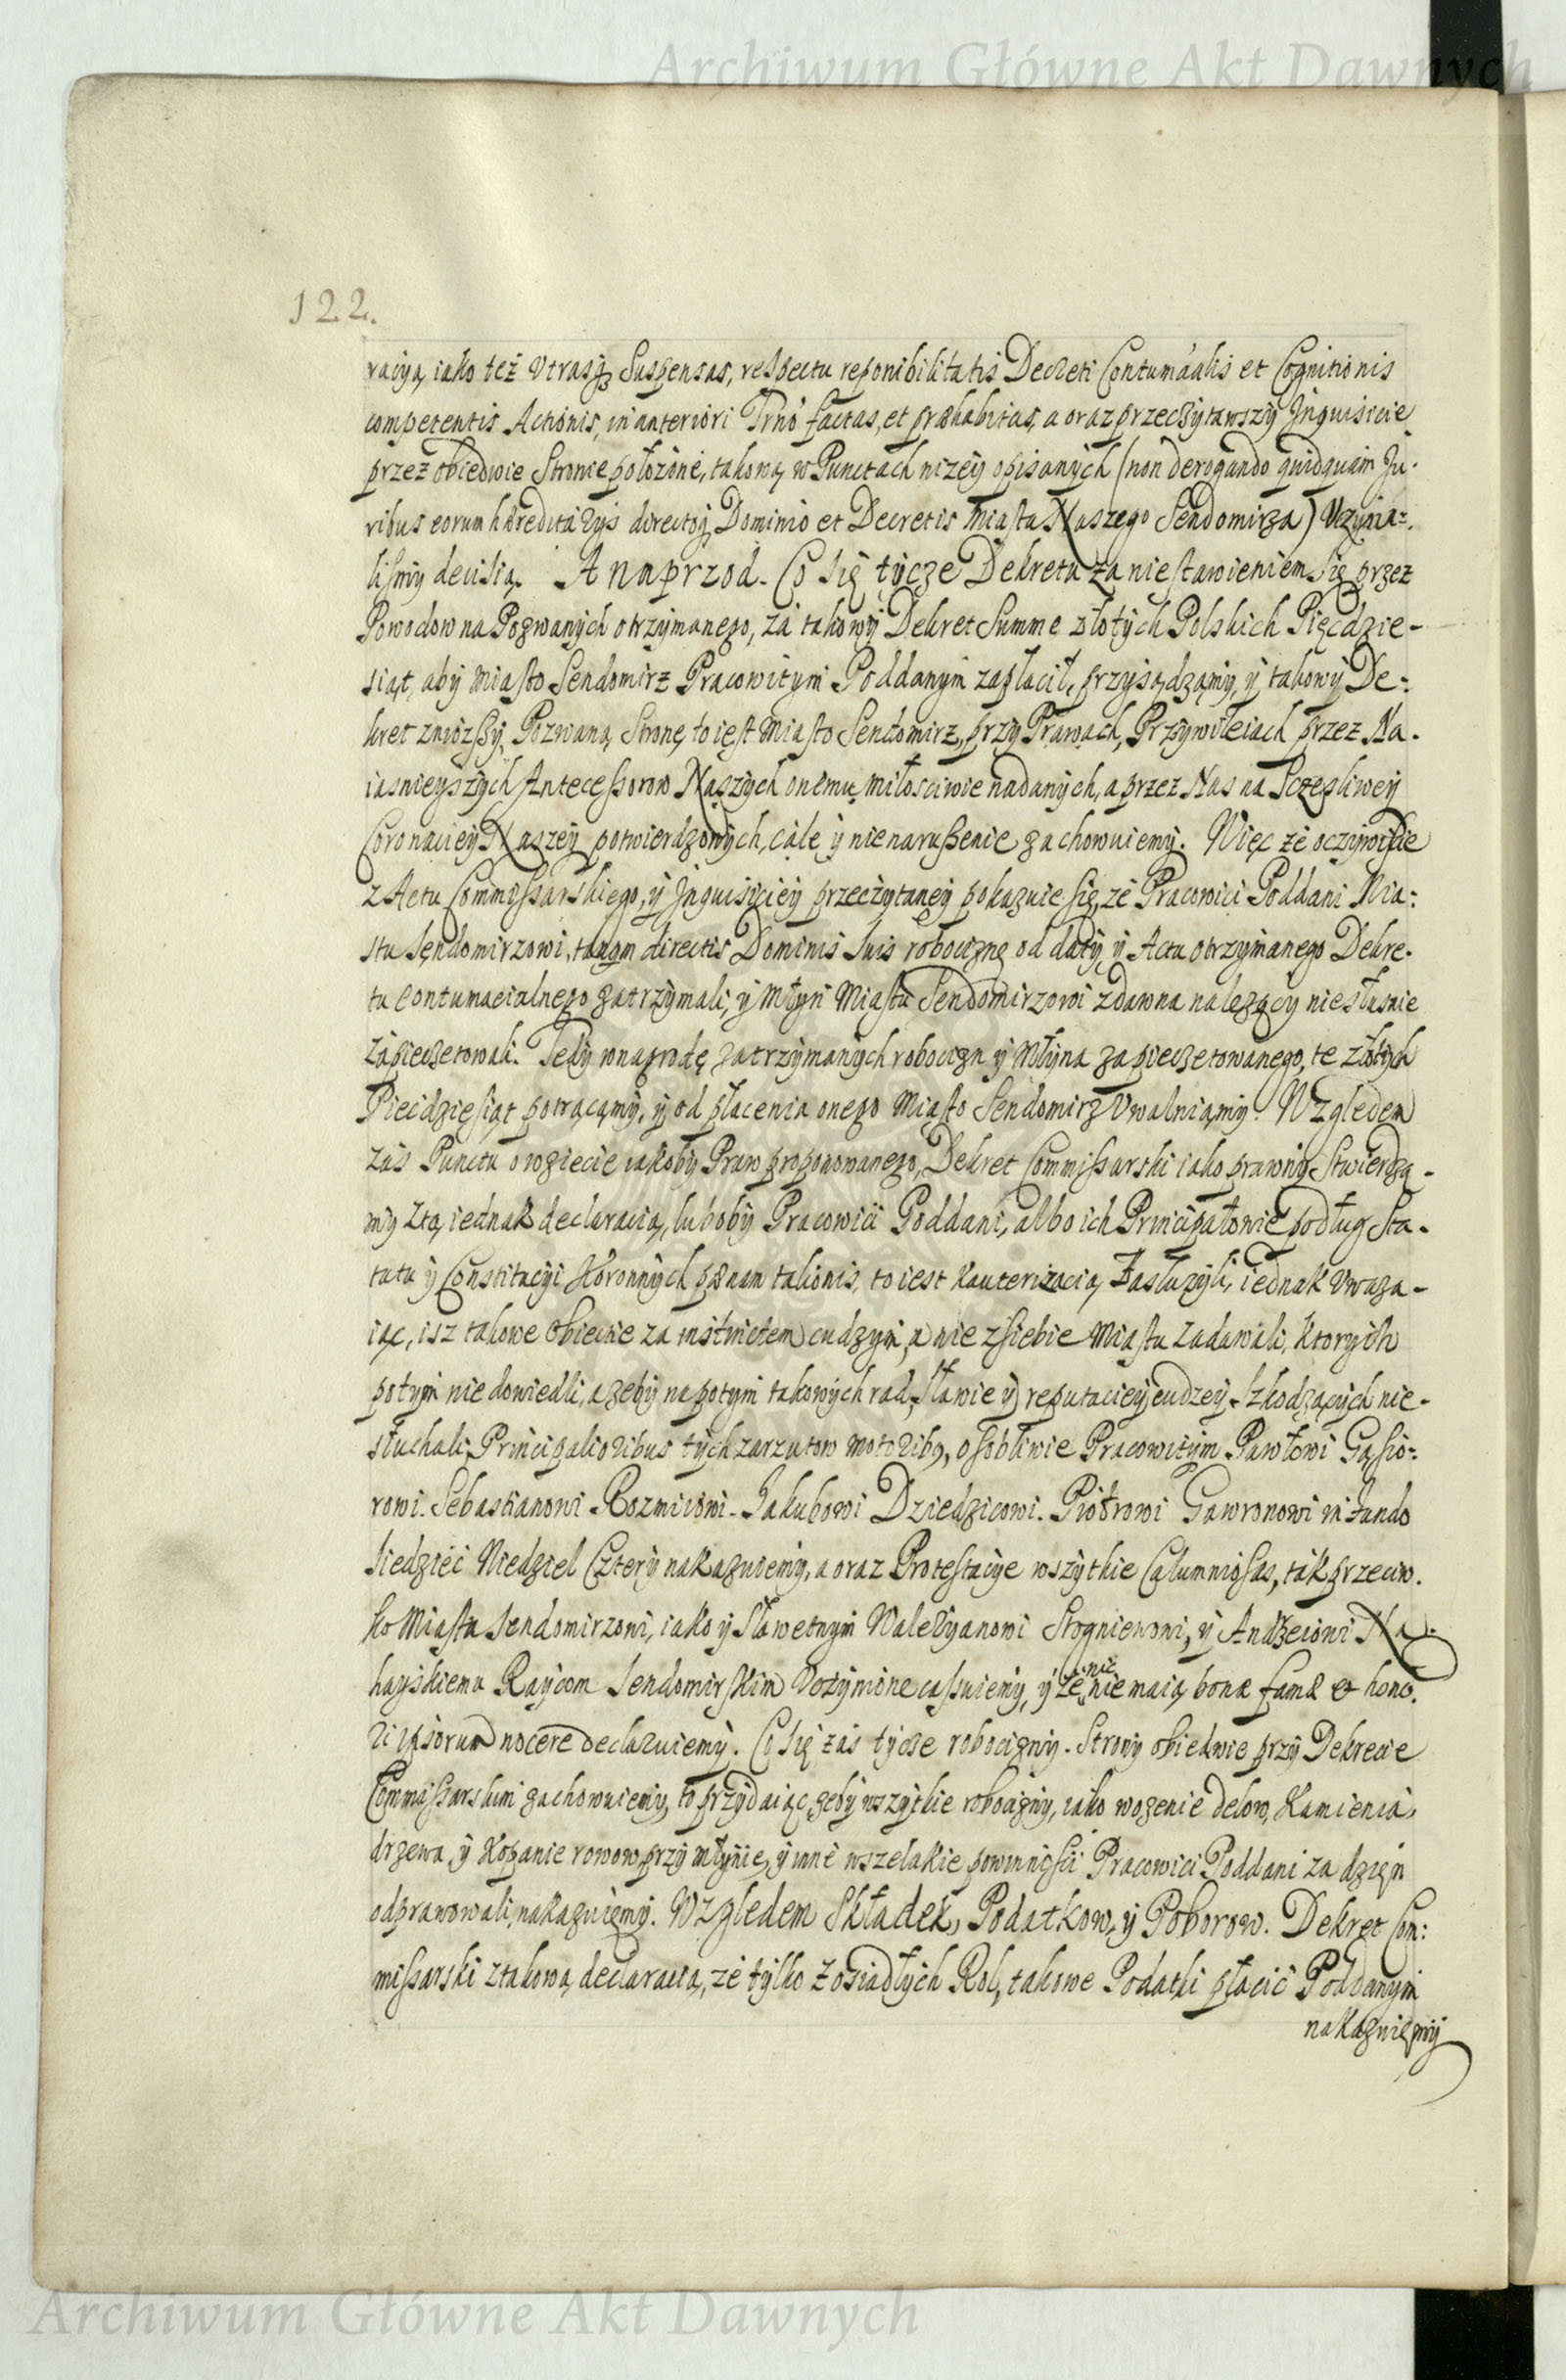 Archiwum Główne Akt Dawnych
122.
racyą, iako też utrasq, Suspensas, respectu reponibilitatis Decreti Contumacialis et Cognitionis
competentis Actionis, in anteriori Trno factas, et præhabitas, a oraz przeczytawszy Inquisicie
przez obiedwie Stronie położone, takową w Punctach niżey opisanych (non derogando quidquam Ju-
ribus eorum hæreditarys directoq Dominio et Decretis Miasta Naszego Sendomirza) Uczyni-
lismy decisią. A naprzod. Co się tycze Dekretu za niestawieniem się przez
Powodow na Pozwanych otrzymanego, za takowy Dekret Summe złotych Polskich Pięćdzie-
siąt, aby Miasto Sendomirz Pracowitym Poddanym zapłacił, przysądzamy, y takowy De-
kret zniozszy, Pozwaną Stronę, to iest Miasto Sendomirz, przy Prawach, Przywileiach przez Na-
iasnieyszych Antecessorow Naszych onemu miłosciwie nadanych, a przez Nas na Sczęsliwey
Coronaciey Naszey potwierdzonych, cale y nienarußenie zachowuiemy. Więc że oczywiscie
z Actu Commissarskiego, y Inquisiciey przeczytaney pokazuie się, że Pracowici Poddani Mia-
stu Sendomirzowi, tanqm directis Dominis suis robociznę od daty y Actu otrzymanego Dekre-
tu Contumacialnego zatrzymali, y Młyn Miastu Sendomirzowi zdawna należący niesłusnie
zapieczetowali. Tedy wnagrodę zatrzymanych robocizn y Młyna zapieczetowanego, te złotych
Piecidziesiąt potrącamy, y od płacenia onego Miasto Sendomirz Uwalniamy. Względem
zas Punctu o wzięcie iakoby Praw proponowanego, Dekret Commissarski iako prawny Stwierdza-
my z tą iednak declaracią, luboby Pracowici Poddani, albo ich Principałowie podług Sta-
tutu y Constitucyi Koronnych pœnam talionis, to iest Kauterizacią Zasłuzyli, iednak Uwaza-
iąc, isz takowe obiectie za instinctem cudzym, a nie z siebie Miastu Zadawali, ktorych
potym nie dowiedli, a zeby napotym takowych rad, Sławie y reputaciey cudzey Szkodzących nie-
słuchali, Principalioribus tych zarzutow motoribq, osobliwie Pracowitym Pawłowi Gąsio-
rowi. Sebastianowi Rozmiiowi. Jakubowi Dziedzicowi. Piotrowi Gawronowi in fundo
siedzieć Niedziel Cztery nakazuiemy, a oraz Protestacye wszytkie Calumniosas, tak przeciw-
ko Miastu Sendomirzowi, iako y Sławetnym Waleryanowi Stogniewowi, y Andrzeiowi Na-
hayskiemu Raycom Sendomirskim Uczynione cassuiemy, y że nic nie maią bonæ famæ et hono-
ri ipsorum nocere declaruiemy. Co się zas tycze robocizny. Strony obiedwie przy Dekrecie
Commissarskim zachowuiemy, to przydaiąc, zeby wszytkie robocizny, iako wozenie delow, Kamienia,
drzewa, y Kopanie rowow przy młynie, y inne wszelakie powinnosci Pracowici Poddani za dzien
odprawowali, nakazuiemy. Względem Składek, Podatkow, y Poborow. Dekret Com-
missarski z takową declaracią, że tylko z osiadłych Rol, takowe Podatki płacić Poddanym
nakazuiemy
Archiwum Główne Akt Dawnych